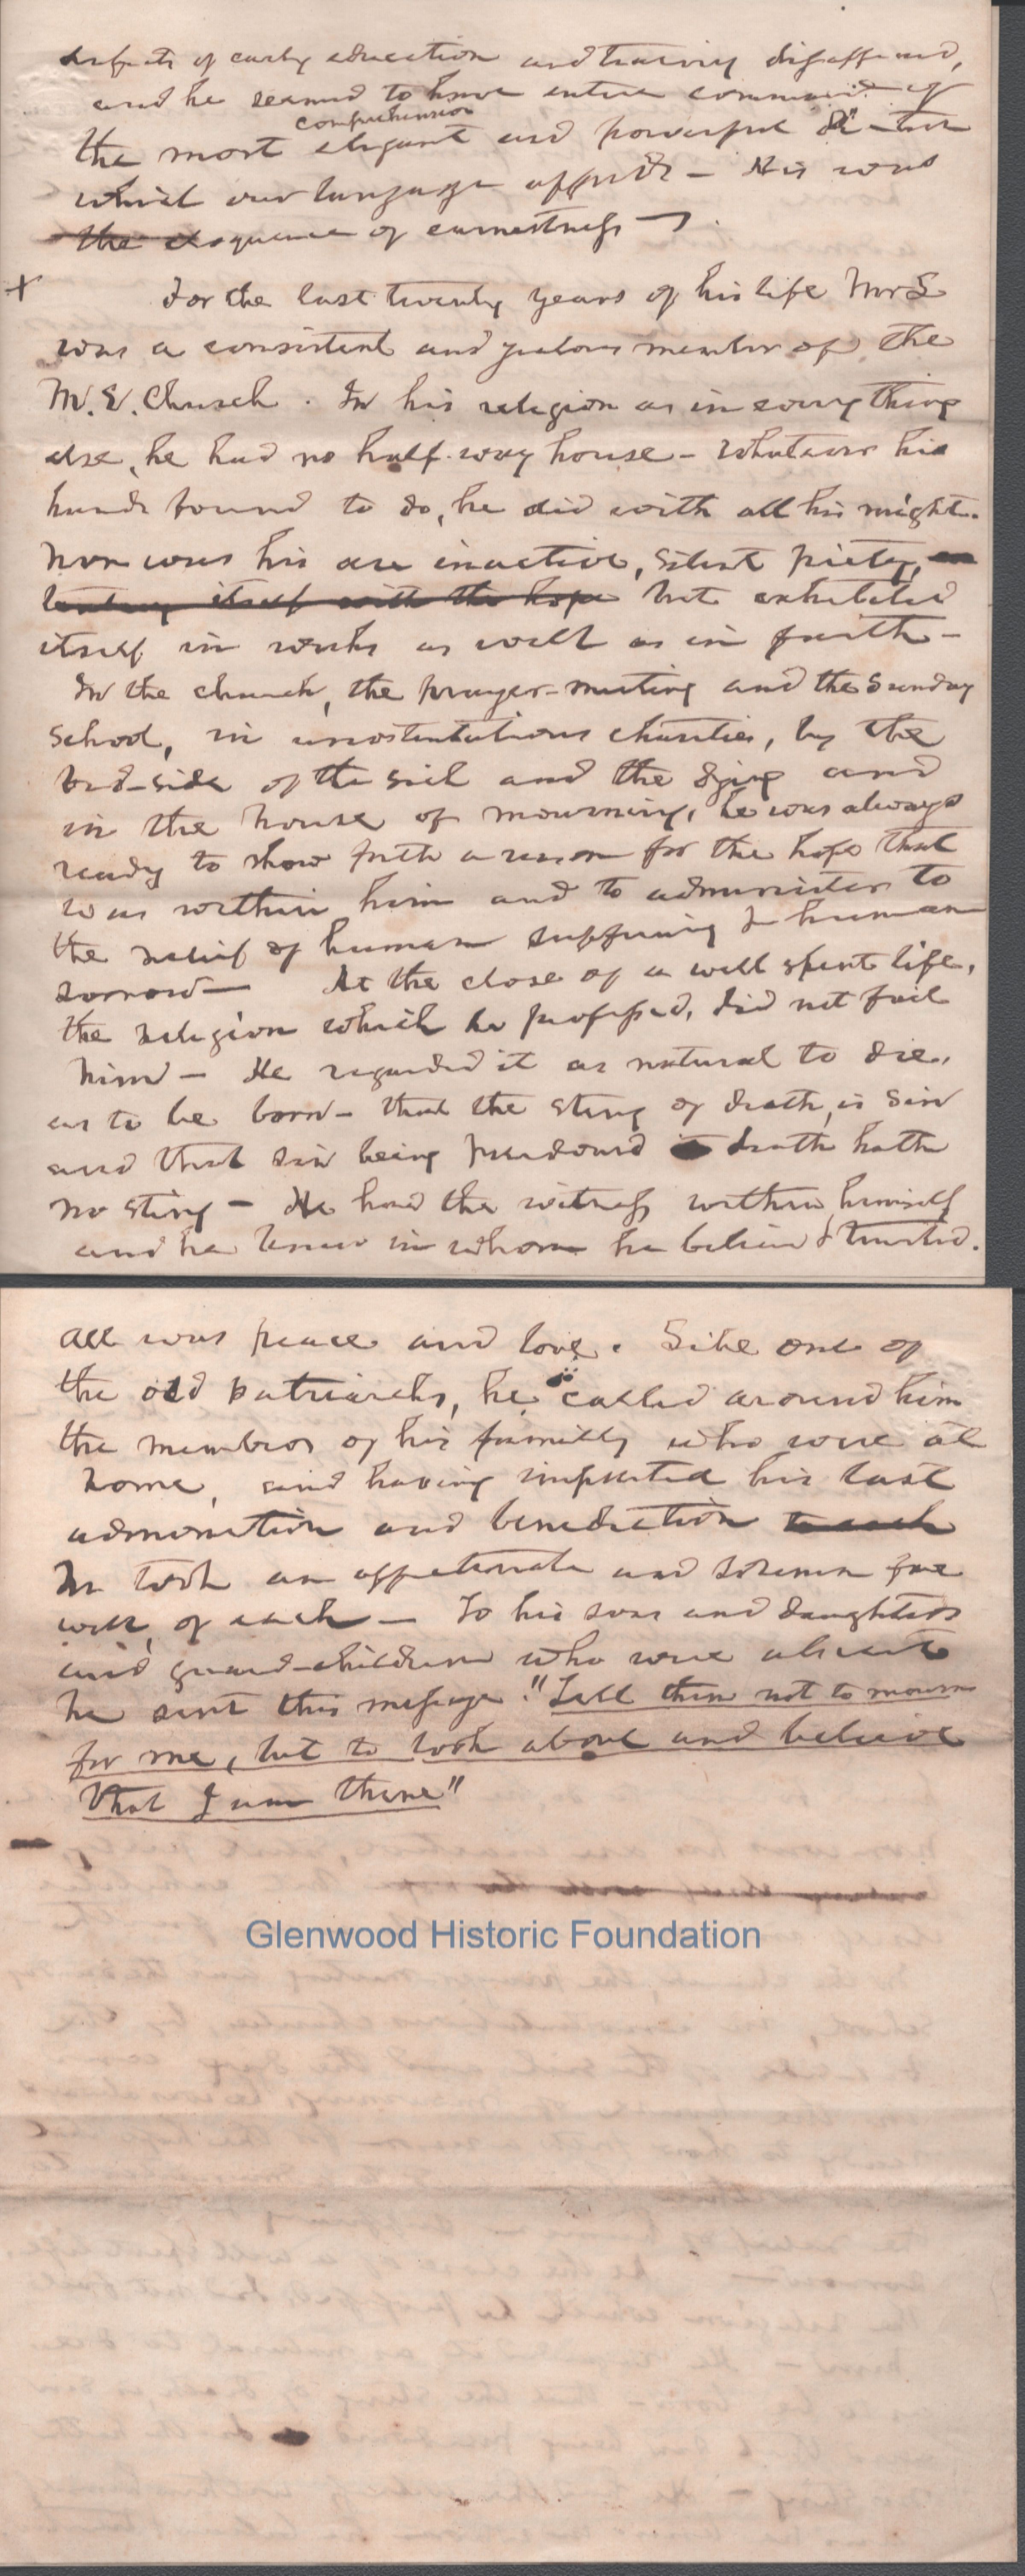 defects of early education and training disappeared,
and he seemed to have entire command of
comprehension
the most elegant and powerful diction
which our language affords - His was
the eloquence of earnestness -
+ For the last twenty years of his life Mr S
was a consistent and zealous member of the
M. E. Church. In his religion as in everything
else, he had no half-way house - Whatever his
hands found to do, he did with all his might.
Nor was his an inactive, silent piety,
itself with the hope but exhibited
itself in works as well as in faith -
In the church, the prayer-meeting and the Sunday
School, in unostentatious charities, by the
bed-side of the sick and the dying and
in the house of mourning, he was always
ready to show forth a reason for the hope that
was within him and to administer to
the relief of human suffering & human
sorrow - At the close of a well spent life,
the religion which he professed, did not fail
him - He regarded it as natural to die,
as to be born - that the sting of death, is sin
and that sin being pardoned death hath
no sting - He had the witness within himself
and he knew in whom he believed & trusted.
All was peace and love. Like one of
the old patriarchs, he called around him
the members of his family who were at
home, and having imparted his last
admonition and benediction to each
he took an affectionate and solemn fare
well, of each - To his sons and daughters
and grand-children who were absent
he sent this message "Tell them not to mourn
for me, but to look above and believe
that I am there"
Glenwood Historic Foundation